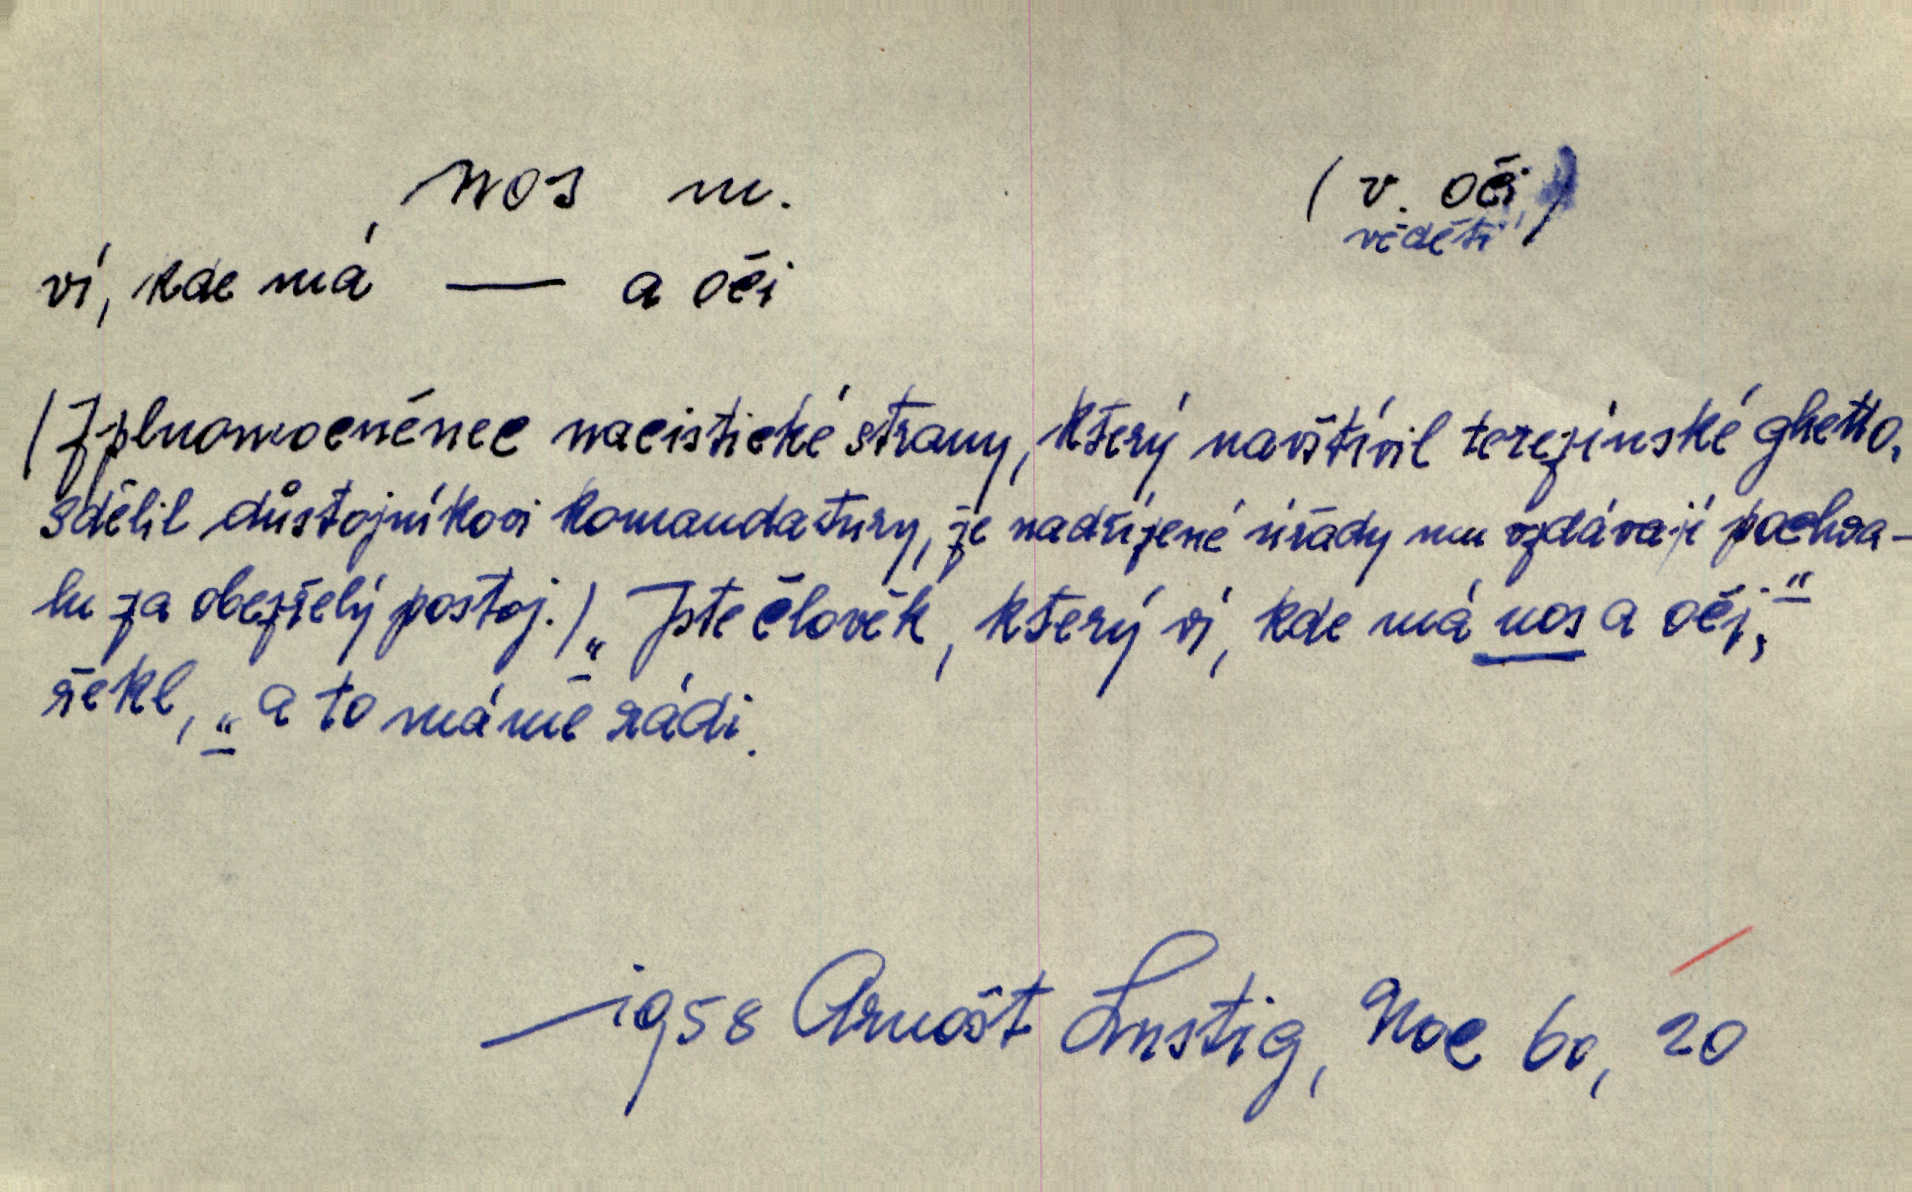 nos m. (v. oči,
věděti)
ví, kde má — a oči
(Zplnomocněnec nacistické strany, který navštívil terezínské ghetto,
sdělil důstojníkovi komandatury, že nadřízené úřady mu vzdávají pochva-
lu za obezřelý postoj.) „Jste člověk, který ví, kde má nos a oči,“
řekl, „a to máme rádi.
1958 Arnošt Lustig, Noc 60, 20